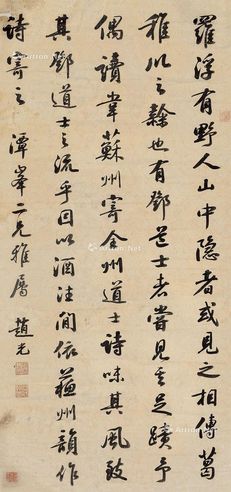 羅浮有野人山中隱者或見之相傳葛
稚川之隸也有鄧道士者嘗見其足蹟予
偶讀韋蘇州寄全州道士詩味其風致
其鄧道士之流乎因以酒注間依蘇州韻作
詩寄之 潭峯二兄雅屬 趙光